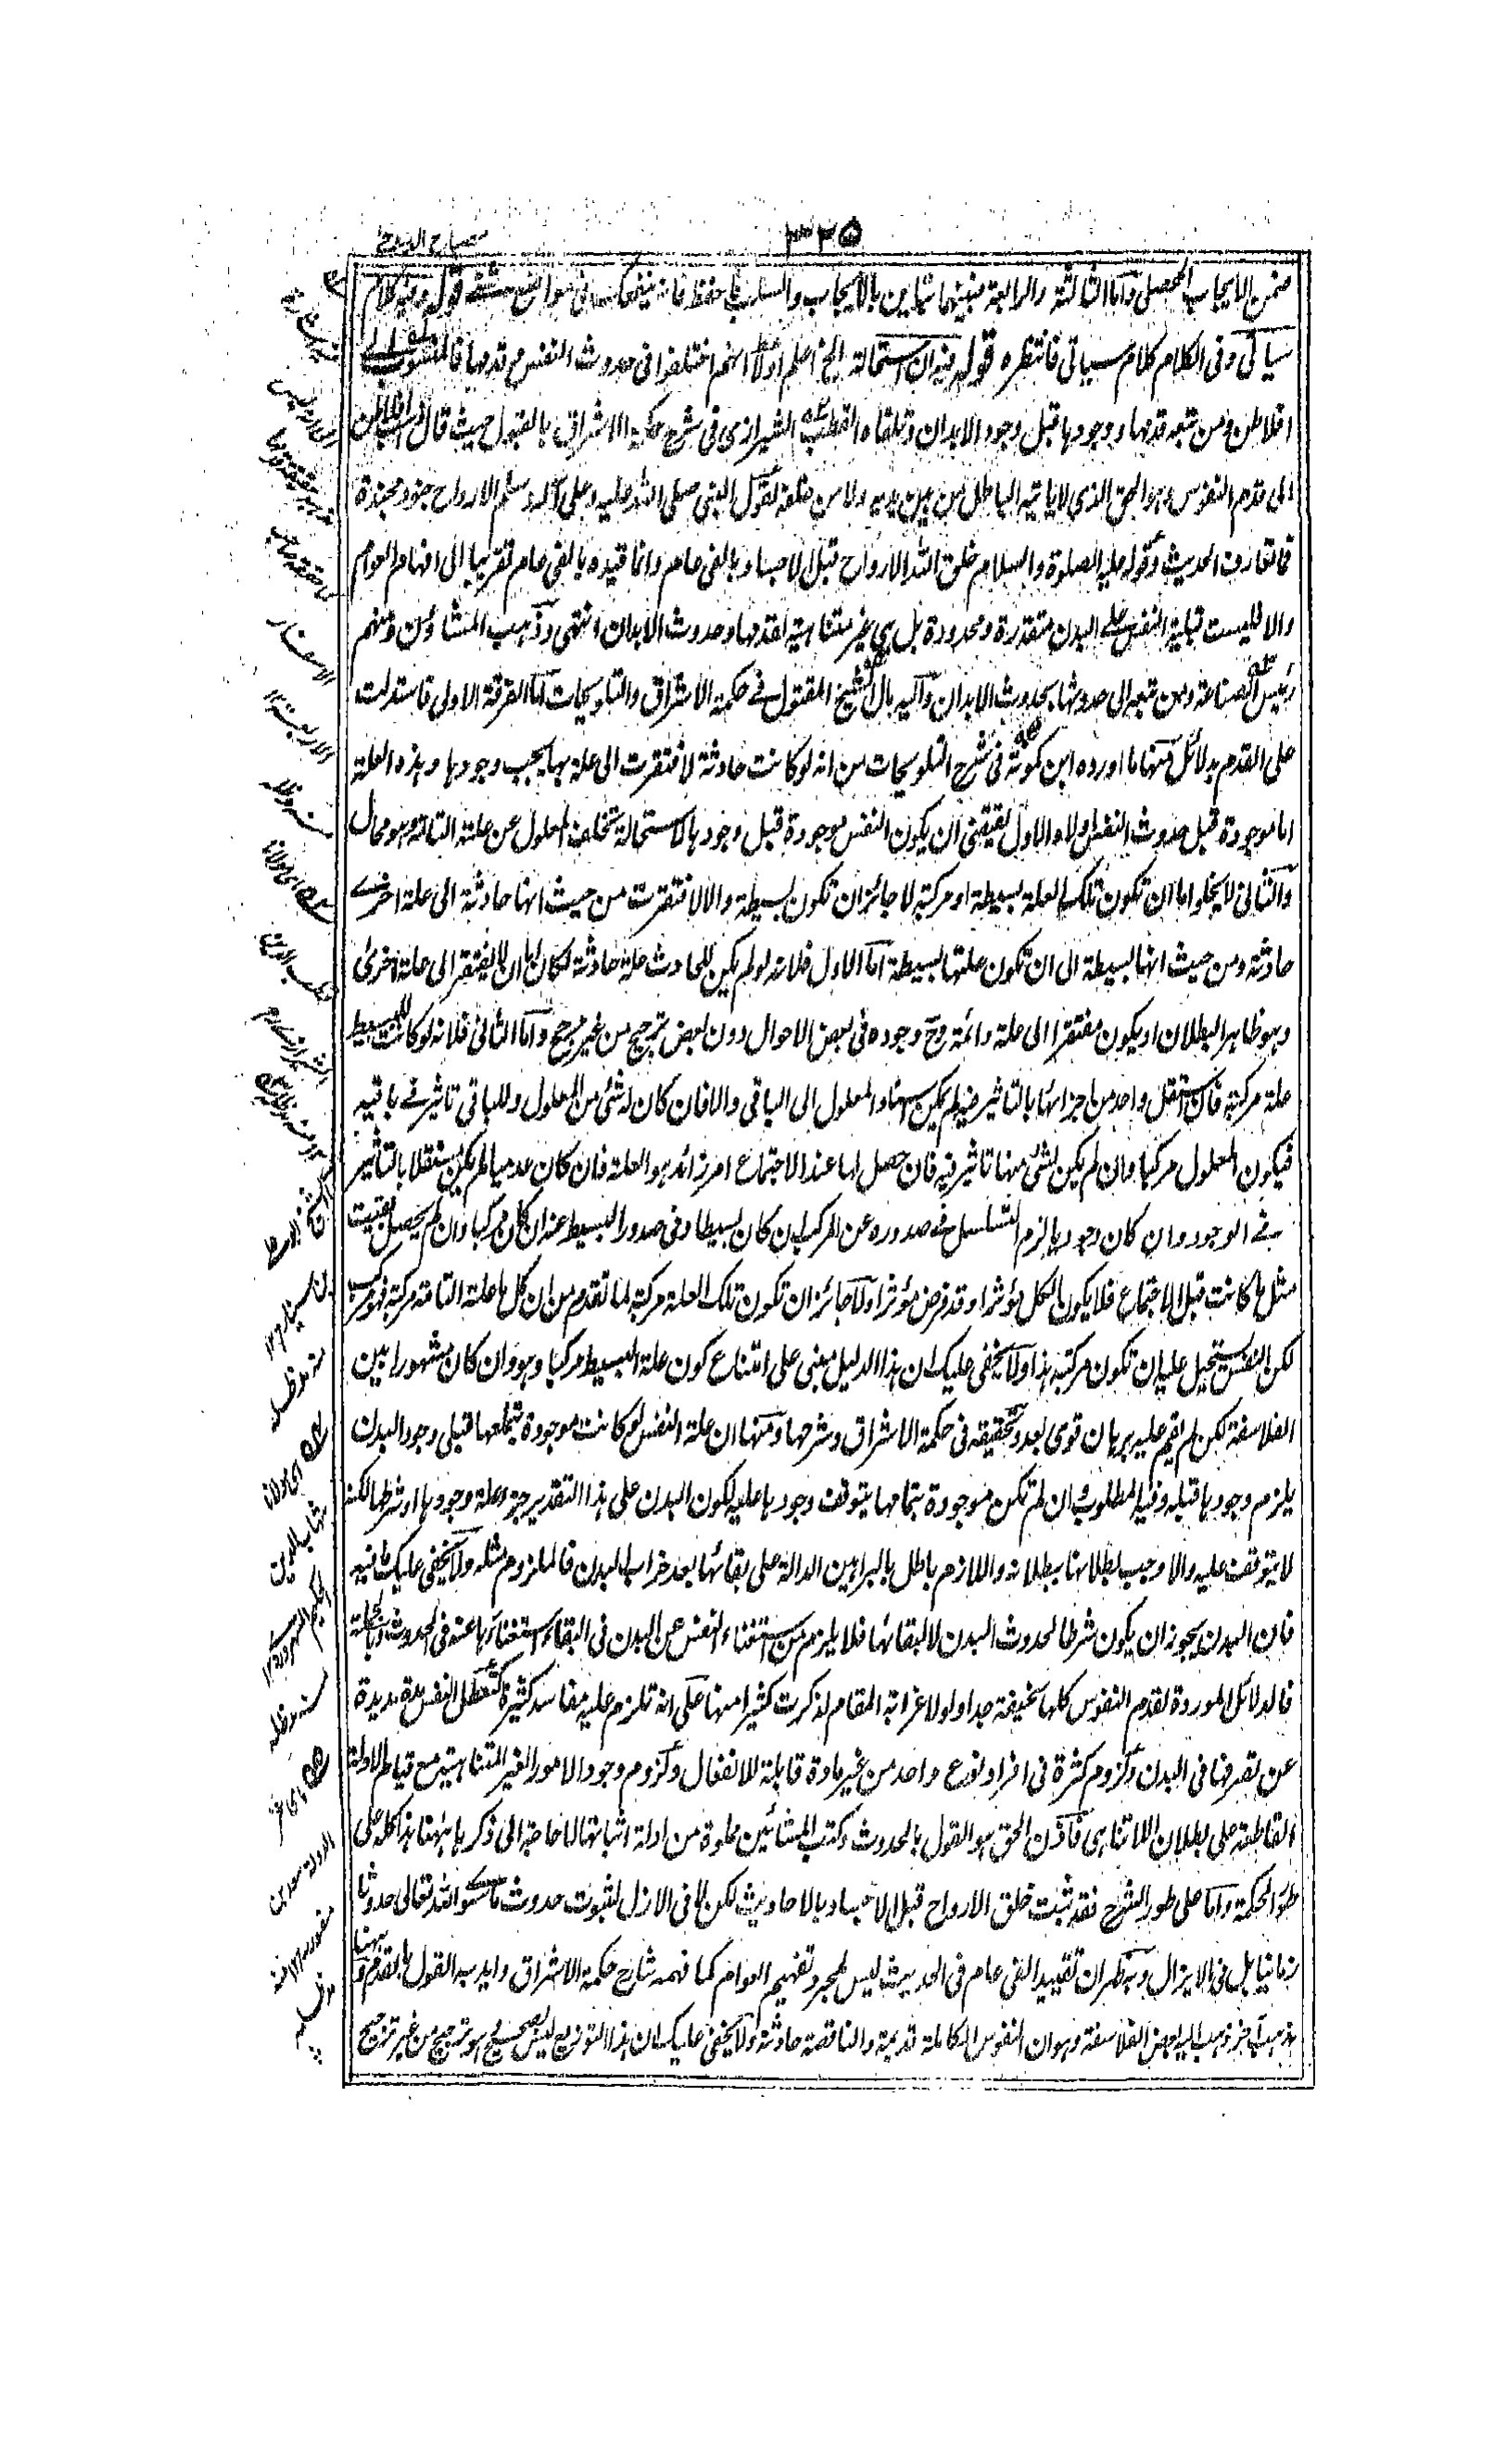 ٣٣٥
مصباح الدجى
ضمن الايجاب المحصلى واما الثالثة والرابعة فبينهما تباين بالايجاب والسلب فاحفظ فانه ينفعك فى مواضع شتى قوله وفيه كلام
سياتى وفى الكلام كلام سياتى فانتظره قوله فيه ان استحالة الخ اعلم اولا انهم اختلفوا فى حدوث النفس وقدمها فالمنسوب الى
افلاطن ومن تبعه قدمها ووجودها قبل وجود الابدان وتلقاه القطب الشيرازى فى شرح حكمة الاشراق بالقبول حيث قال ذهب افلاطن
الى قدم النفوس وهو الحق الذى لا ياتيه الباطل من بين يديه ولا من خلفه لقول النبى صلى الله عليه وعلى آله وسلم الارواح جنود مجندة
فما تعارف الحديث وقوله عليه الصلوة والسلام خلق الله الارواح قبل الاجساد بالفى عام وانما قيده بالفى عام تقريبا الى افهام العوام
والا فليست قبلية النفس على البدن متقدرة ومحدودة بل هى غير متناهية لقدمها وحدوث الابدان انتهى وذهب المشاؤن ومنهم
رئيس الصناعة ومن تبعه الى حدوثها بحدوث الابدان واليه مال الشيخ المقتول فى حكمة الاشراق والتلويحات اما الفرقة الاولى فاستدلت
على القدم بدلائل منها ما اورده ابن كمونة فى شرح التلويحات من انه لو كانت حادثة لافتقرت الى علة بها يجب وجودها وهذه العلة
اما موجودة قبل حدوث النفس او لا والاول يقتضى ان يكون النفس موجودة قبل وجودها لاستحالة تخلف المعلول عن علته التامة وهو محال
والثانى لا يخلو اما ان تكون تلك العلة بسيطة او مركبة لا جائز ان تكون بسيطة والا لافتقرت من حيث انها حادثة الى علة اخرى
حادثة ومن حيث انها بسيطة الى ان تكون علتها بسيطة اما الاول فلانه لو لم يكن للحادث علة حادثة لكان اما ان لا يفتقر الى علة اخرى
وهو ظاهر البطلان او يكون مفتقرا الى علة دائمة وح وجوده فى بعض الاحوال دون بعض ترجيح من غير مرجح واما الثانى فلانه لو كانت للبسيط
علة مركبة فان استقل واحد من اجزائها بالتاثير فيه لم يكن استناد المعلول الى الباقى والا فان كان له شئ من المعلول وللباقى تاثير فى باقيه
فيكون المعلول مركبا وان لم يكن لشئ منها تاثير فيه فان حصل لها عند الاجتماع امر زائد هو العلة فان كان عدميا لم يكن مستقلا بالتاثير
فى الوجود وان كان وجوديا لزم التسلسل فى صدوره عن المركب ان كان بسيطا وفى صدور البسيط عنه ان كان مركبا وان لم يحصل بقيت
مثل ما كانت قبل الاجتماع فلا يكون الكل مؤثرا وقد فرض مؤثرا ولا جائز ان تكون تلك العلة مركبة لما تقدم من ان كل ما علته التامة مركبة فهو مركب
لكن النفس يستحيل عليها ان تكون مركبة هذا ولا يخفى عليك ان هذا الدليل مبنى على امتناع كون علة البسيط مركبا وهو وان كان مشهورا بين
الفلاسفة لكن لم يقم عليه برهان قوى بعد وتحقيقه فى حكمة الاشراق وشرحها ومنها ان علة النفس لو كانت موجودة بتمامها قبل وجود البدن
يلزم وجودها قبله وفيه المطلوب وان لم تكن موجودة بتمامها يتوقف وجودها عليه لكون البدن على هذا التقدير جزء علة وجودها او شرطها لكنه
لا يتوقف عليه والا وجب بطلانها ببطلانه واللازم باطل بالبراهين الدالة على بقائها بعد خراب البدن فالملزوم مثله ولا يخفى عليك ما فيه
فان البدن يجوز ان يكون شرطا لحدوث البدن لا لبقائها فلا يلزم من استغناء النفس عن البدن فى البقاء استغناءها عنه فى الحدوث وبالجملة
فالدلائل الموردة لقدم النفوس كلها سخيفة جدا ولو لا غرابة المقام لذكرت كثيرا منها على انه تلزم عليه مفاسد كثيرة كتعطل النفس مدة مديدة
عن تصرفها فى البدن ولزوم كثرة فى افراد نوع واحد من غير مادة قابلة للانفعال ولزوم وجود الامور الغير المتناهية مع قيام الادلة
القاطعة على بطلان اللاتناهى فاذن الحق هو القول بالحدوث وكتب المشائين مملوة من ادلة اثباتها لا حاجة الى ذكرها ههنا هذا كله على
طور الحكمة واما على طور الشرع فقد ثبت خلق الارواح قبل الاجساد بالاحاديث لكن لا فى الازل لثبوت حدوث ما سوى الله تعالى حدوثا
زمانيا بل فى لا يزال وبه ظهر ان تقييد الفى عام فى الحديث ليس لمجرد تفهيم العوام كما فهمه شارح حكمة الاشراق وايد به القول بالقدم وههنا
مذهب آخر ذهب اليه بعض الفلاسفة وهو ان النفوس الكاملة قديمة والناقصة حادثة ولا يخفى عليك ان هذا التوزيع ليس بصحيح هو ترجيح من غير ترجيح